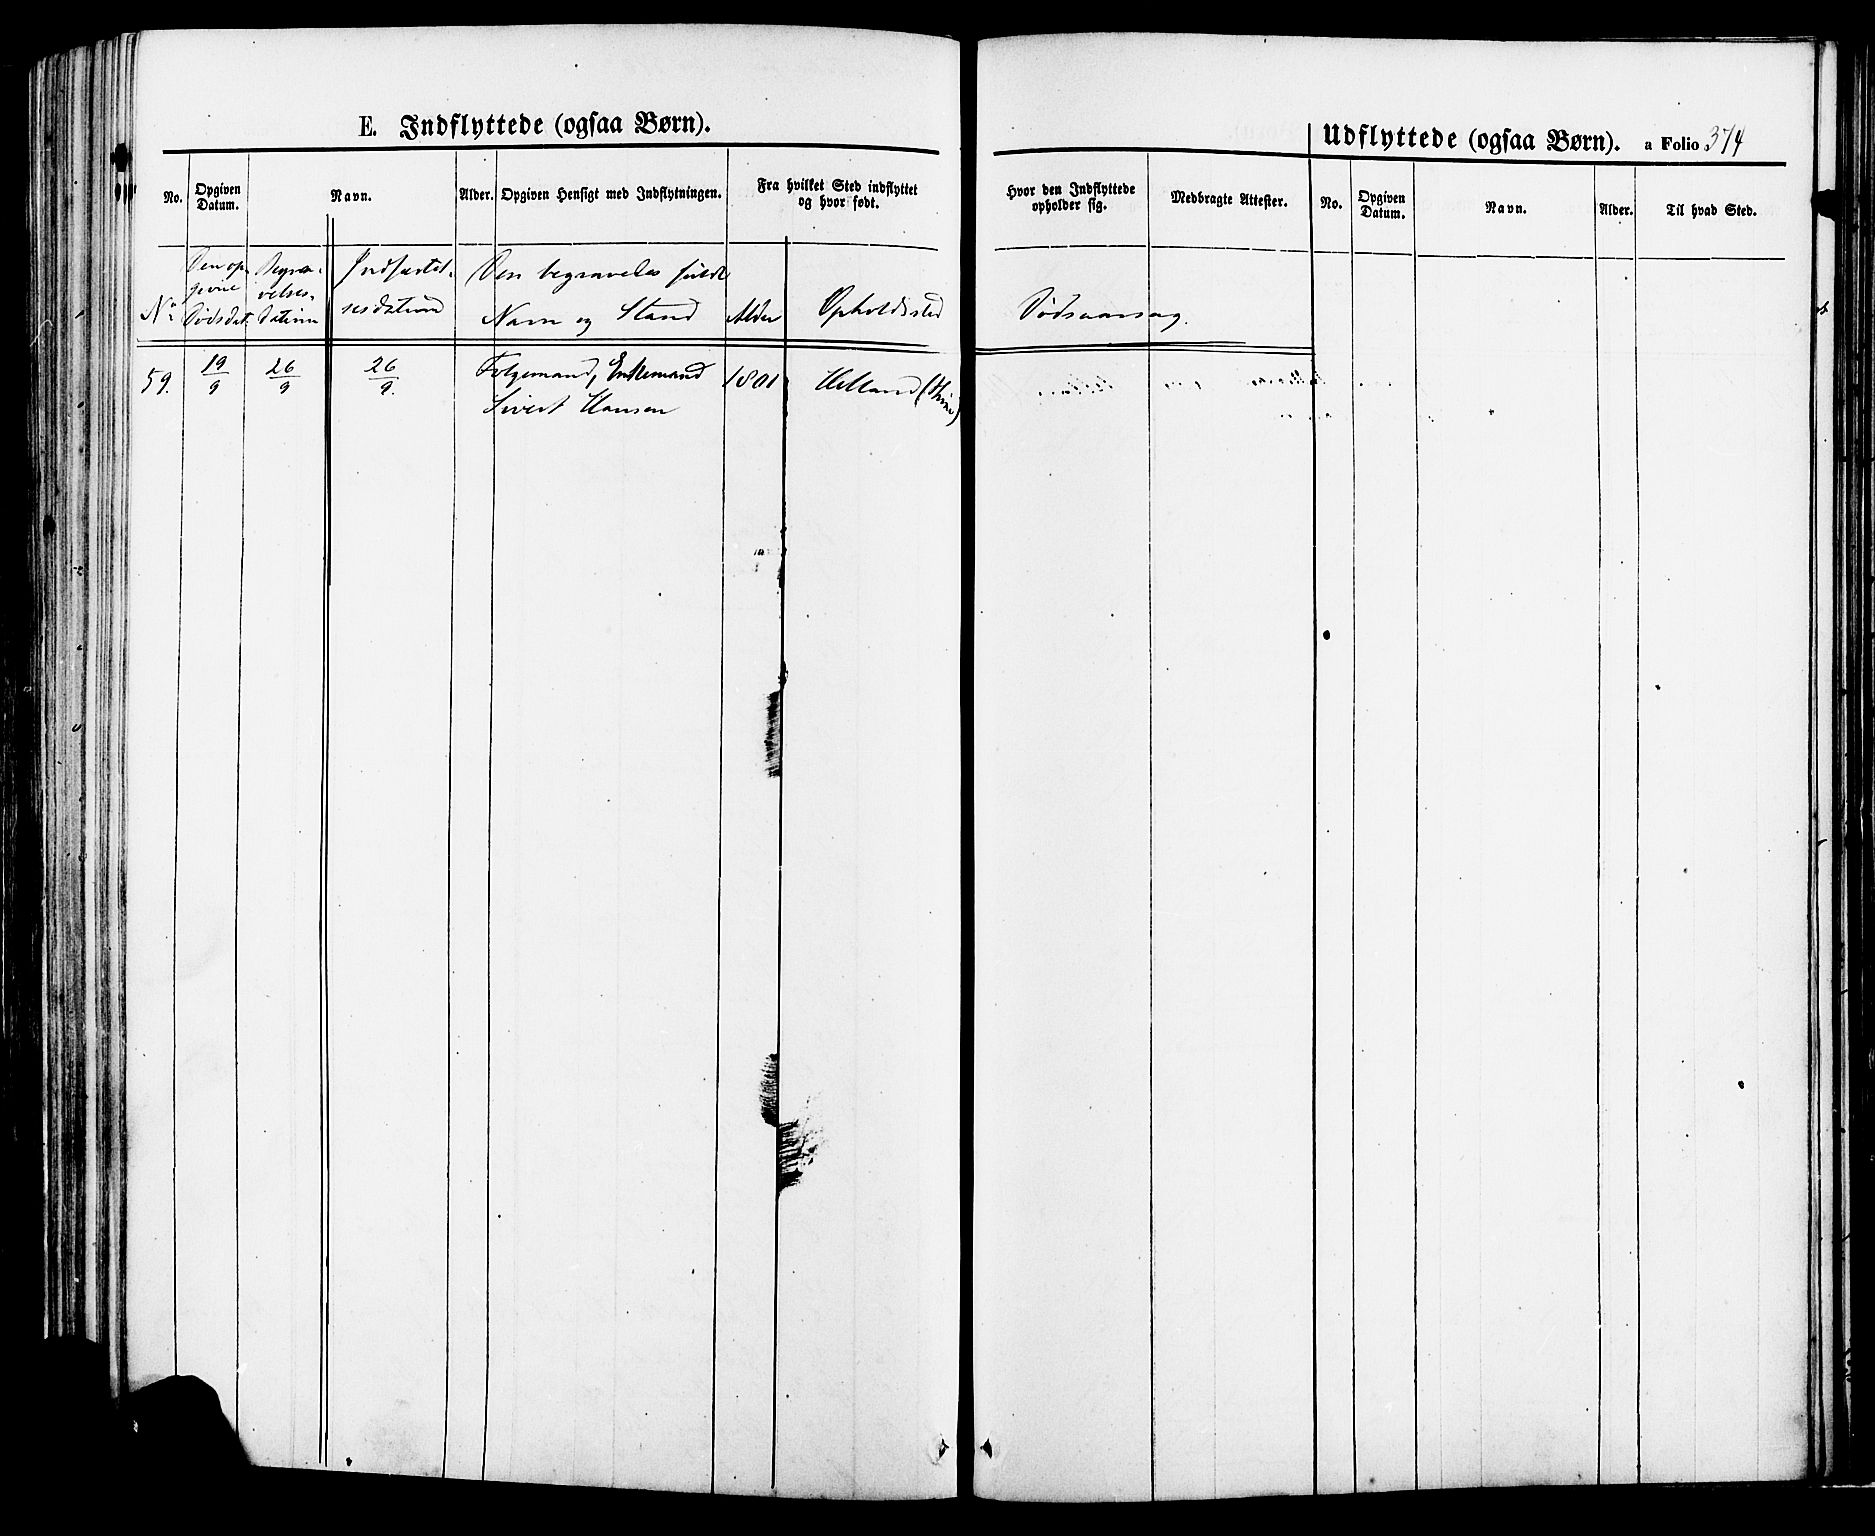 E. Indflyttede (ogsaa Børn).
No.
Opgiven
Datum.
Navn.
Alder.
Opgiven Hensigt med Indflytningen.
Fra hvilket Sted indflyttet
og hvor født.
No
Den op
givne
Dødsdat.
Begra-
velses-
datum
Indførtel-
sesdatum
Den begravedes fulde
Navn og Stand
Alder
Opholdssted
59.
19/9
26/9
26/9.
Folgemand, Enkemand
Sivert Hansen
1801
Helland
Udflyttede (ogsaa Børn).
a Folio 374
Hvor den Indflyttede
opholder sig.
Medbragte Attester.
No.
Opgiven
Datum.
Navn.
Alder.
Til hvad Sted.
Dødsaarsag.